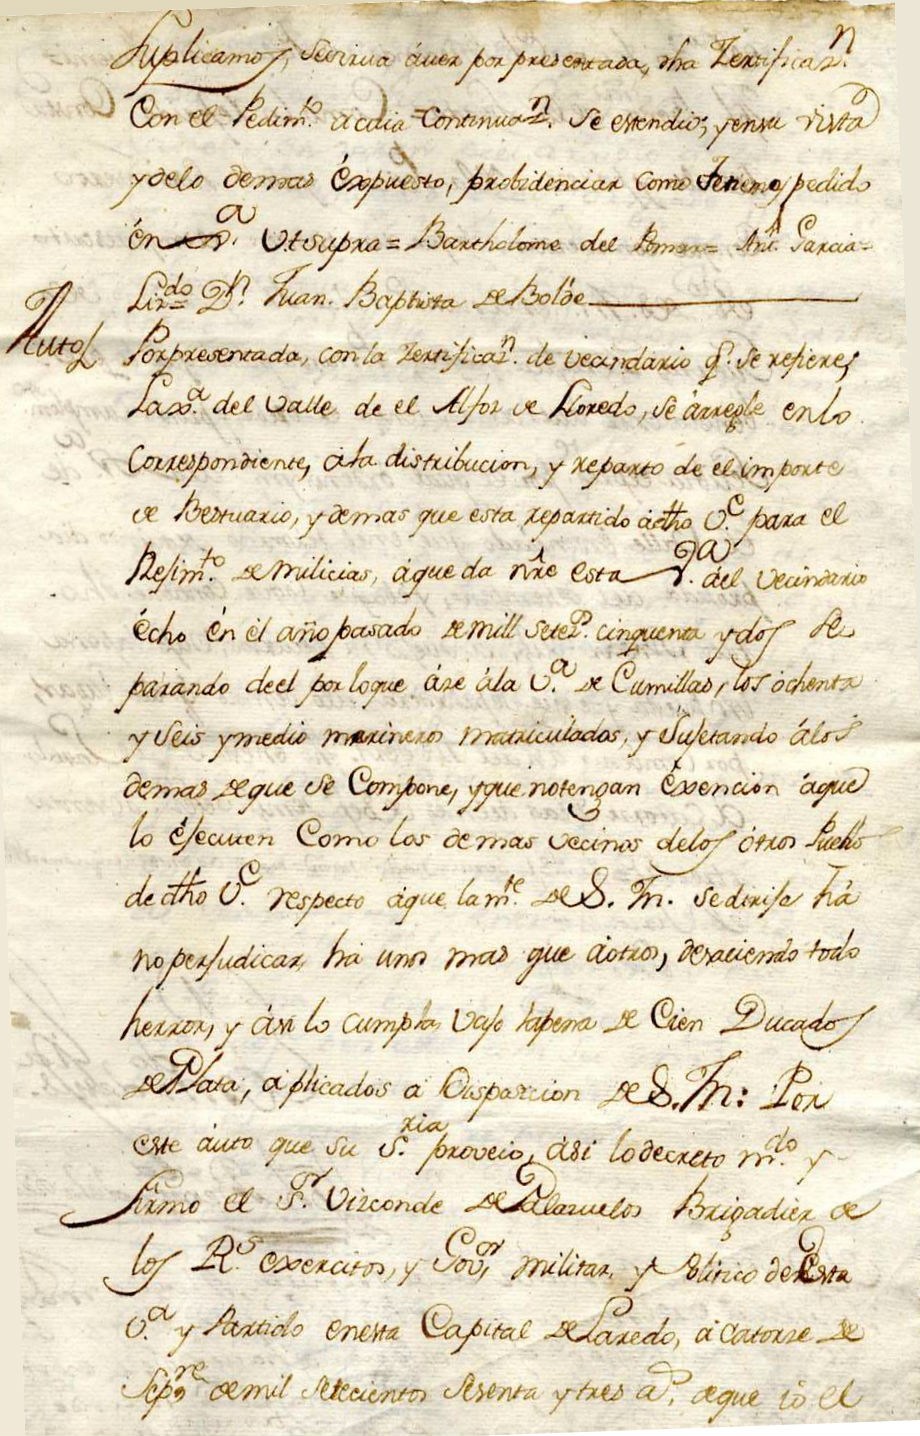 Suplicamos, se sirva áver por presentada, dha Zertificaz.n
Con el Pedim.to a cuia Continuaz.n se estendio; y en su vista
y de lo demas éxpuesto, probidenciar como tenemos pedido
én Ut supra = Bartholome del = Ant.º Garcia =
Liz.do D.n Juan Baptista de Bolde
Autos
Por presentada, con la Zertificaz.n de vecindario q.e se refiere,
La x.a del Valle de el Alfoz de Lloredo, se árregle en lo
correspondiente, a la distribucion, y reparto de el importe
de Bestuario, y demas que esta repartido a dtho V.e para el
Rejim.to de Milicias, á que da nre esta del vecindario
écho én el año pasado de mill sete.s cinquenta y dos se
parando de el por lo que áze á la V.a de Cumillas, los ochenta
y seis y medio marineros matriculados, y sujetando á los
demas de que se Compone, y que no tengan éxencion á que
lo éjecuten Como los demas vecinos de los ótros Pueblos
de dtho V.e respecto á que la m.te de S. M. se dirije há
no perjudicar, há unos mas que á otros, desaciendo todo
herror, y ási lo cumpla, vajo la pena de Cien Ducados
de Plata, áplicados a Disposicion de S. M: Por
este áuto que su S.ria proveio, ási lo decreto m.do y
firmo el S.r Vizconde de Palazuelos Brigadier de
los R.s exercitos, y Gov.or militar, y Politico de esta
V.a y Partido en esta Capital de Laredo, á catorze de
Sep.re de mil setecientos sesenta y tres a.s de que io el